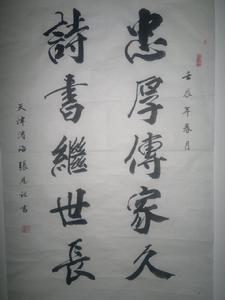 壬辰年春月
忠厚傳家久
詩書繼世長
天津渤海張凡社書